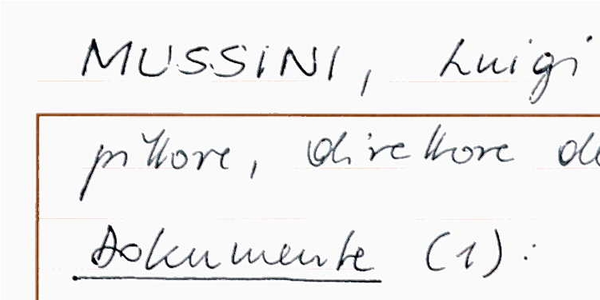 MUSSINI, Luigi
pittore, direttore de
Dokumente (1):